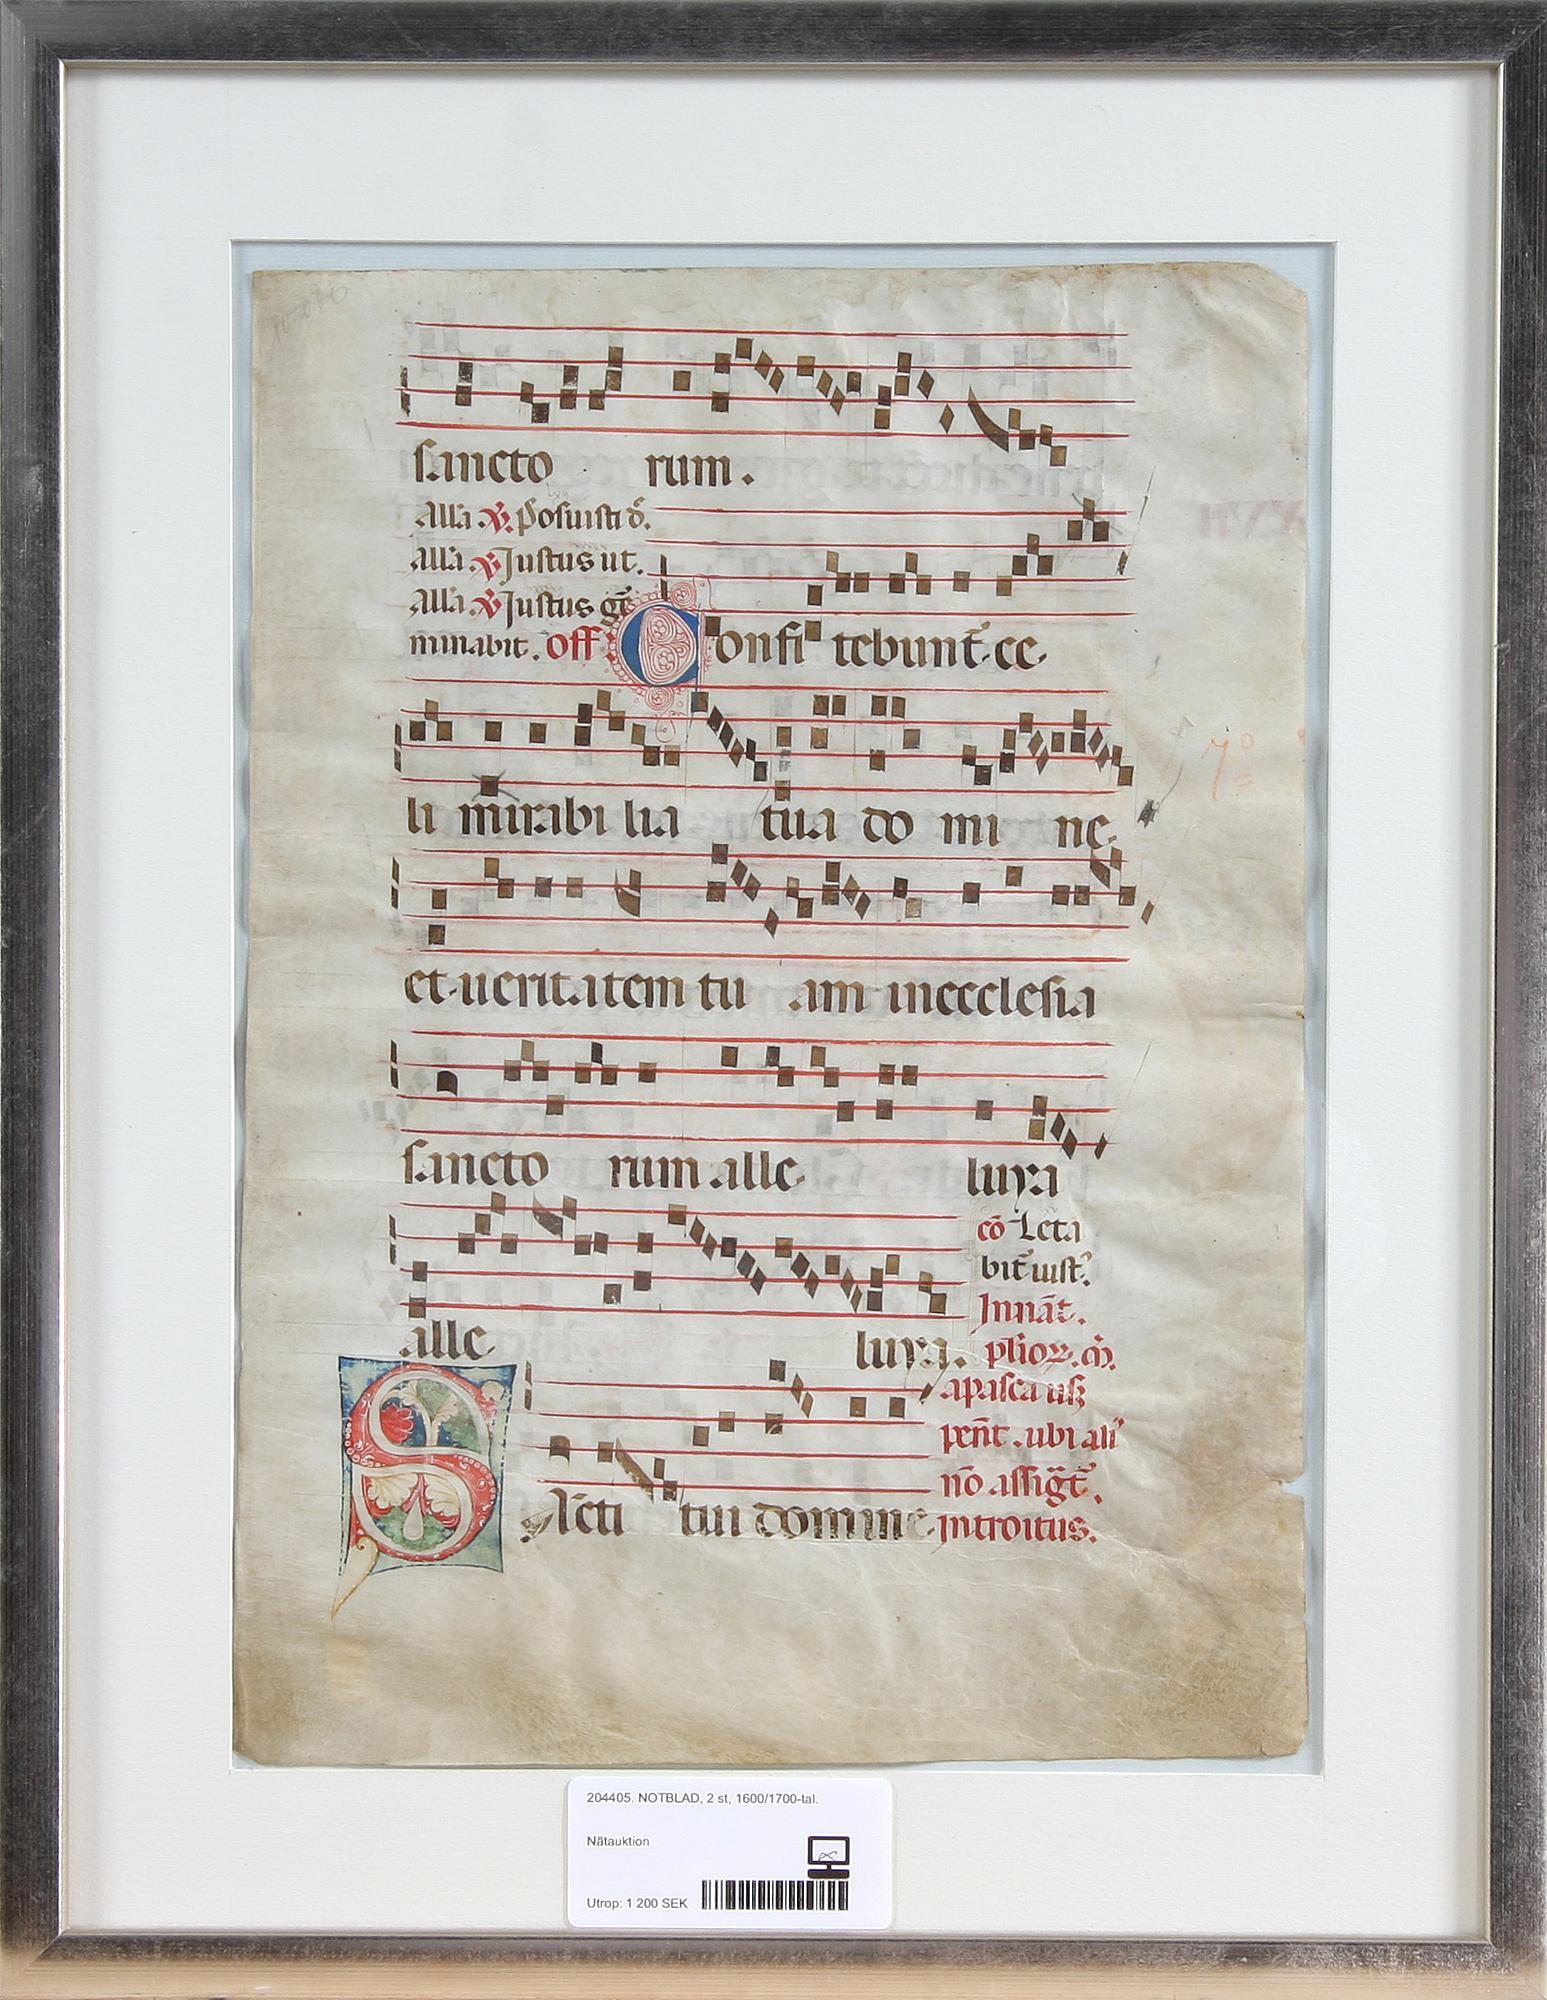 sancto rum.
Alla ℣. posuisti d̄.
Alla ℣ Justus ut.
Alla. ℣ Justus ge᷒
minabit. Off. Confi tebunt̄ ce
li mirabi lia tua do mi ne
et ueritatem tu am inecclesia
sancto rum alle luya
alle luya.
cō Leta
bit̄ iust᷒.
In nāt.
plior. m̄.
a pasca usqꝫ
pent̄. ubi ali᷒
nō assigt̄.
introitus.
SActi tui domine
204405. NOTBLAD, 2 st, 1600/1700-tal.
Nätauktion
Utrop: 1 200 SEK